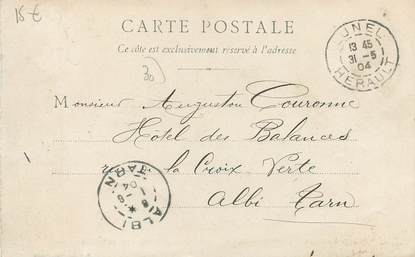 15 €
CARTE POSTALE
Ce côté est exclusivement réservé à l'adresse
30
LUNEL
13 45
31 -5
04
HERAULT
Monsieur Auguston Couronne
Hôtel des Balances
rue la Croix Verte
Albi Tarn
ALBI
TARN
04